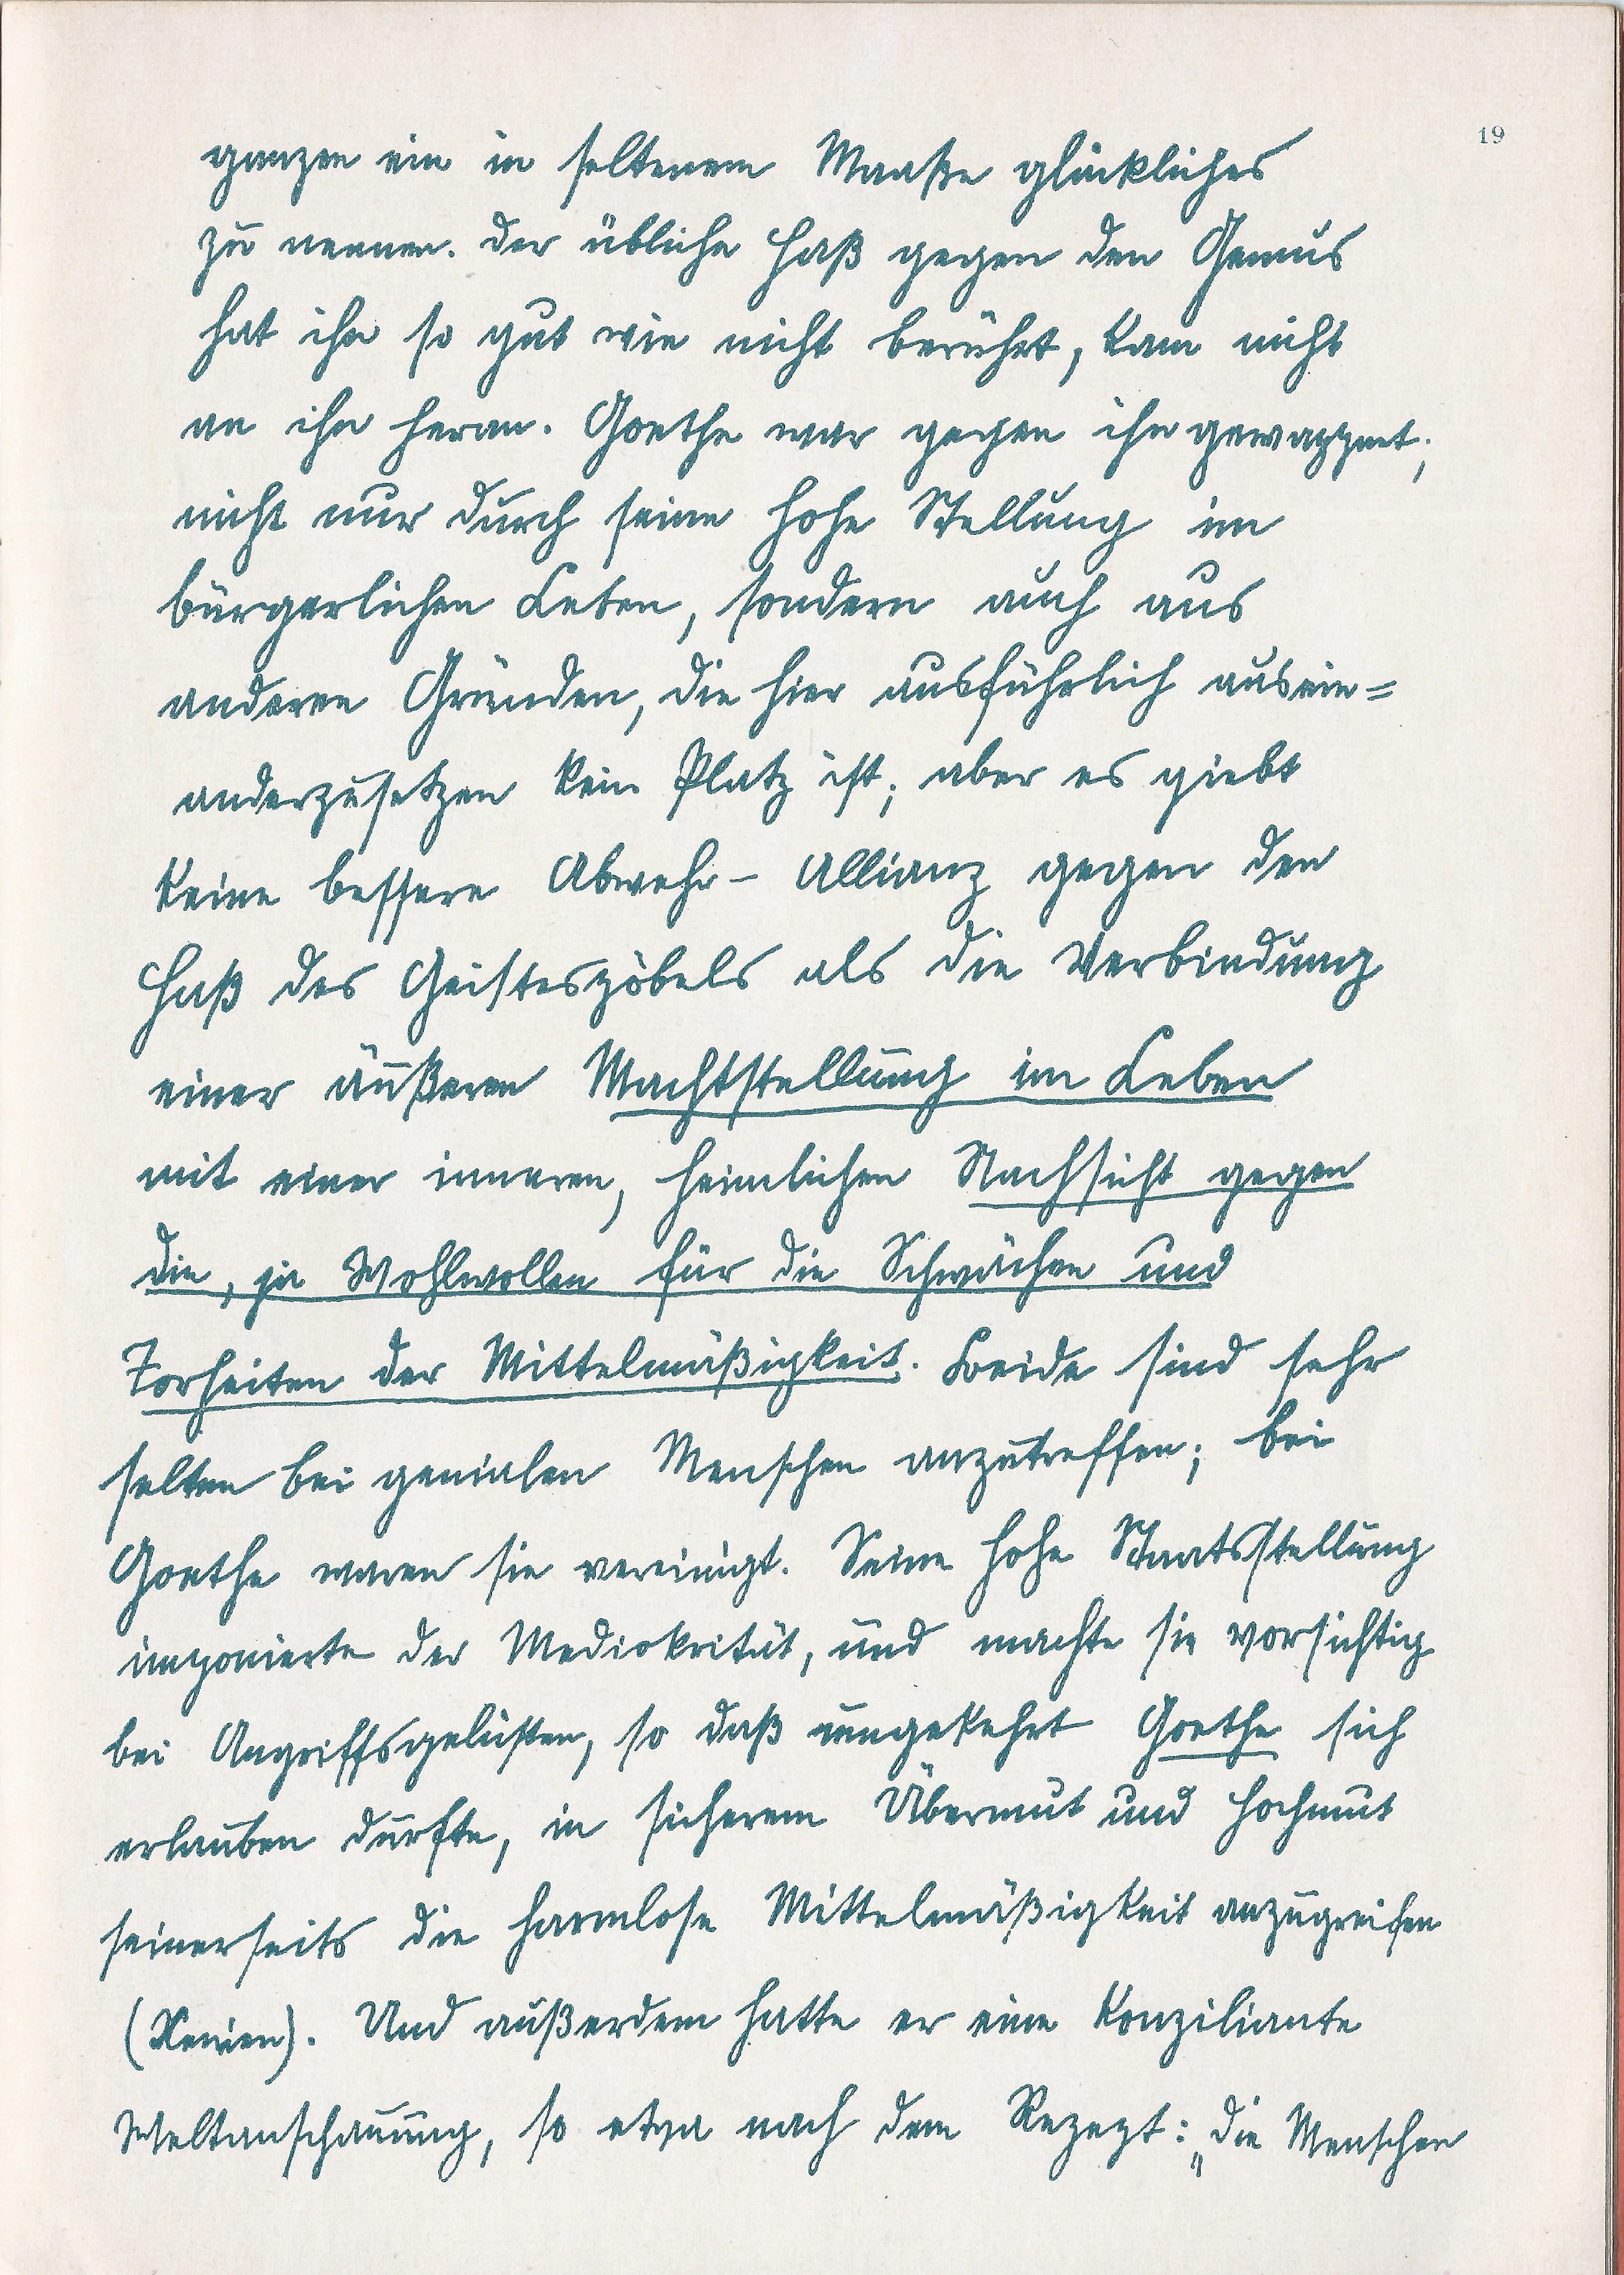 19
ganzen ein in seltenem Maaße glückliches
zu nennen. Der übliche Haß gegen den Genius
hat ihn so gut wie nicht berührt, kam nicht
an ihn heran. Goethe war gegen ihn gewappnet;
nicht nur durch seine hohe Stellung im
bürgerlichen Leben, sondern auch aus
anderen Gründen, die hier ausführlich ausein=
anderzusetzen kein Platz ist; aber es giebt
keine bessere Abwehr-Allianz gegen den
Haß des Geistespöbels als die Verbindung
einer äußeren Machtstellung im Leben
mit einer inneren, heimlichen Nachsicht gegen
die, ja Wohlwollen für die Schwächen und
Torheiten der Mittelmäßigkeit. Beide sind sehr
selten bei genialen Menschen anzutreffen; bei
Goethe waren sie vereinigt. Seine hohe Staatsstellung
imponierte der Mediokrität, und machte sie vorsichtig
bei Angriffsgelüsten, so daß umgekehrt Goethe sich
erlauben durfte, in sicherem Übermut und Hochmut
seinerseits die harmlose Mittelmäßigkeit anzugreifen
(Xenien). Und außerdem hatte er eine konziliante
Weltanschauung, so etwa nach dem Rezept: „Die Menschen